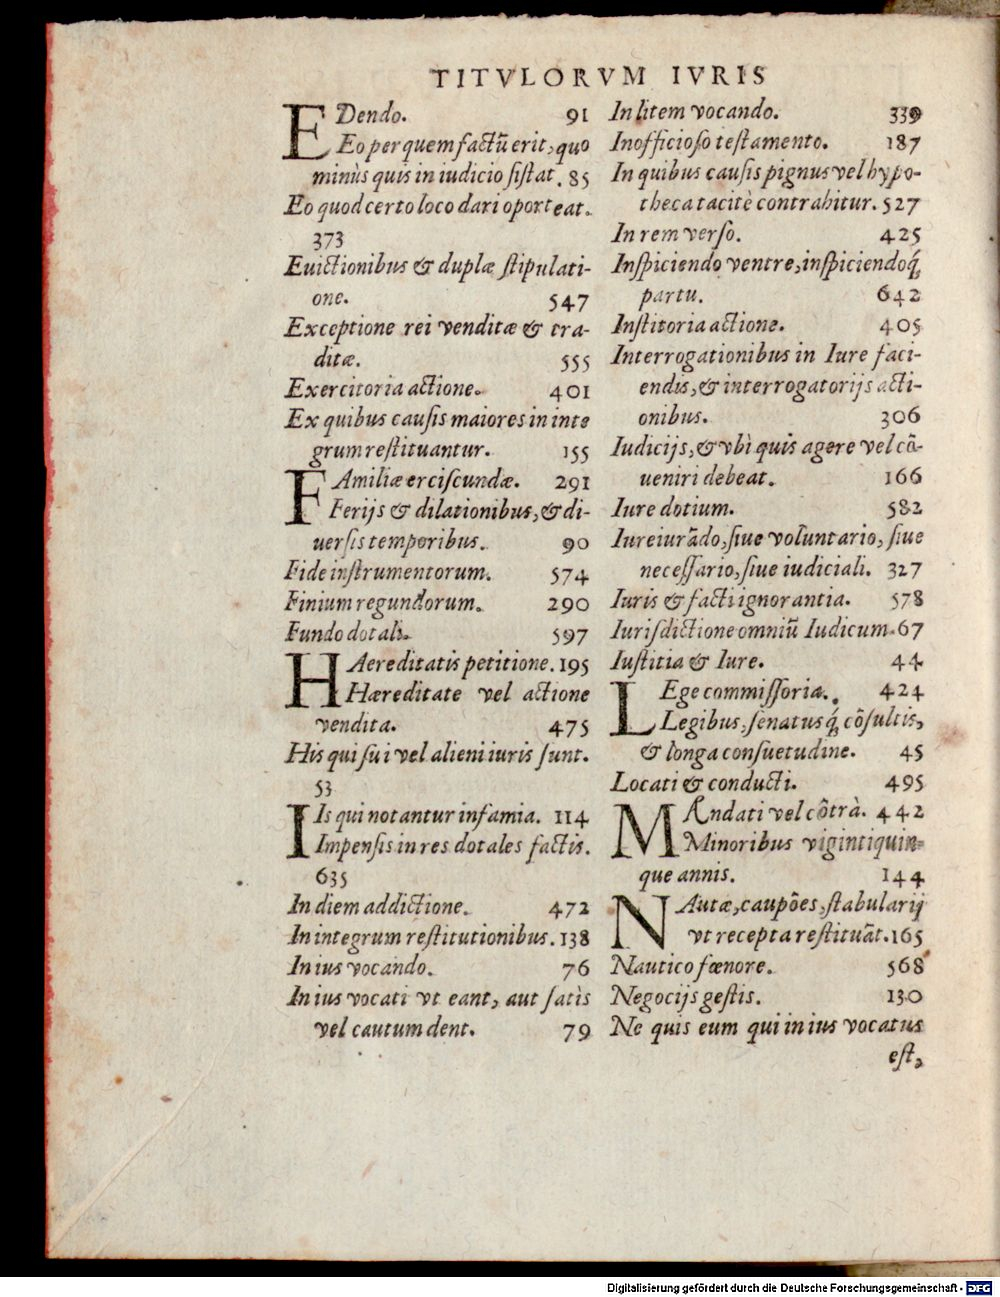 TITVLORVM IVRIS
EDendo. 91
Eo per quem factũ erit, quo
minùs quis in iudicio ſiſtat. 85
Eo quod certo loco dari oporteat.
373
Euictionibus & duplæ ſtipulati-
one. 547
Exceptione rei venditæ & tra-
ditæ. 555
Exercitoria actione. 401
Ex quibus cauſis maiores in inte
grum reſtituantur. 155
FAmiliæ erciſcundæ. 291
Ferijs & dilationibus, & di-
uerſis temporibus. 90
Fide inſtrumentorum. 574
Finium regundorum. 290
Fundo dotali. 597
HAereditatis petitione. 195
Hæreditate vel actione
vendita. 475
His qui ſui vel alieni iuris ſunt.
53
IIs qui notantur infamia. 114
Impenſis in res dotales factis.
635
In diem addictione. 472
In integrum reſtitutionibus. 138
In ius vocando. 76
In ius vocati vt eant, aut ſatis
vel cautum dent. 79
In litem vocando. 339
Inofficioſo teſtamento. 187
In quibus cauſis pignus vel hypo-
theca tacitè contrahitur. 527
In rem verſo. 425
Inſpiciendo ventre, inſpiciendoq́;
partu. 642
Inſtitoria actione. 405
Interrogationibus in Iure faci-
endis, & interrogatorijs acti-
onibus. 306
Iudicijs, & vbì quis agere vel cõ-
ueniri debeat. 166
Iure dotium. 582
Iureiurãdo, ſiue voluntario, ſiue
neceſſario, ſiue iudiciali. 327
Iuris & facti ignorantia. 578
Iuriſdictione omniũ Iudicum. 67
Iuſtitia & Iure. 44
LEge commiſſoria. 424
Legibus, ſenatusq́; cõſultis,
& longa conſuetudine. 45
Locati & conducti. 495
MAndati vel cõtrà. 442
Minoribus vigintiquin-
que annis. 144
NAutæ, caupões, ſtabularij
vt recepta reſtituãt. 165
Nautico fœnore. 568
Negocijs geſtis. 130
Ne quis eum qui in ius vocatus
eſt,
Digitalisierung gefördert durch die Deutsche Forschungsgemeinschaft - DFG